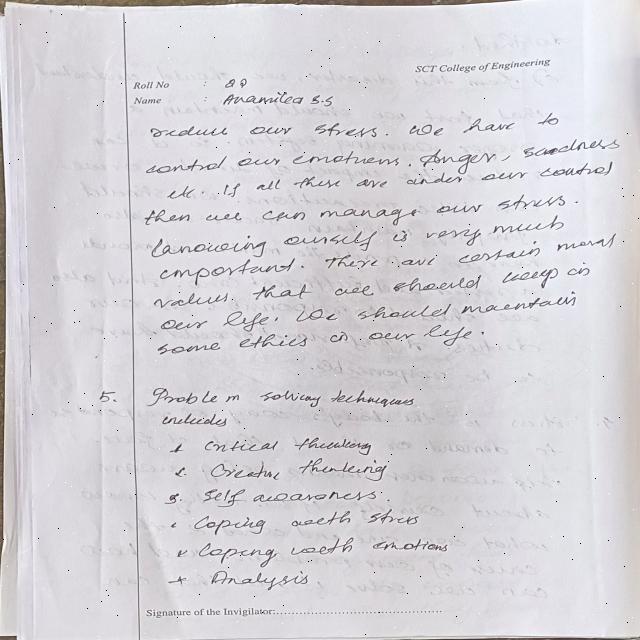 SCT College of Engineering
Roll No :
Name : S.S
reduce our stress. We have to
control our emotions. Anger, sadness
etc. If all these are under our control
then we can manage our stress.
Knowing ourself is very much
important. There are certain moral
values that we should keep in
our life. We should maintain
some ethics in our life.
5. Problem solving techniques
includes
Critical thinking
Creative thinking
Self awareness.
Coping with stress
Coping with emotions
Analysis
Signature of the Invigilator: